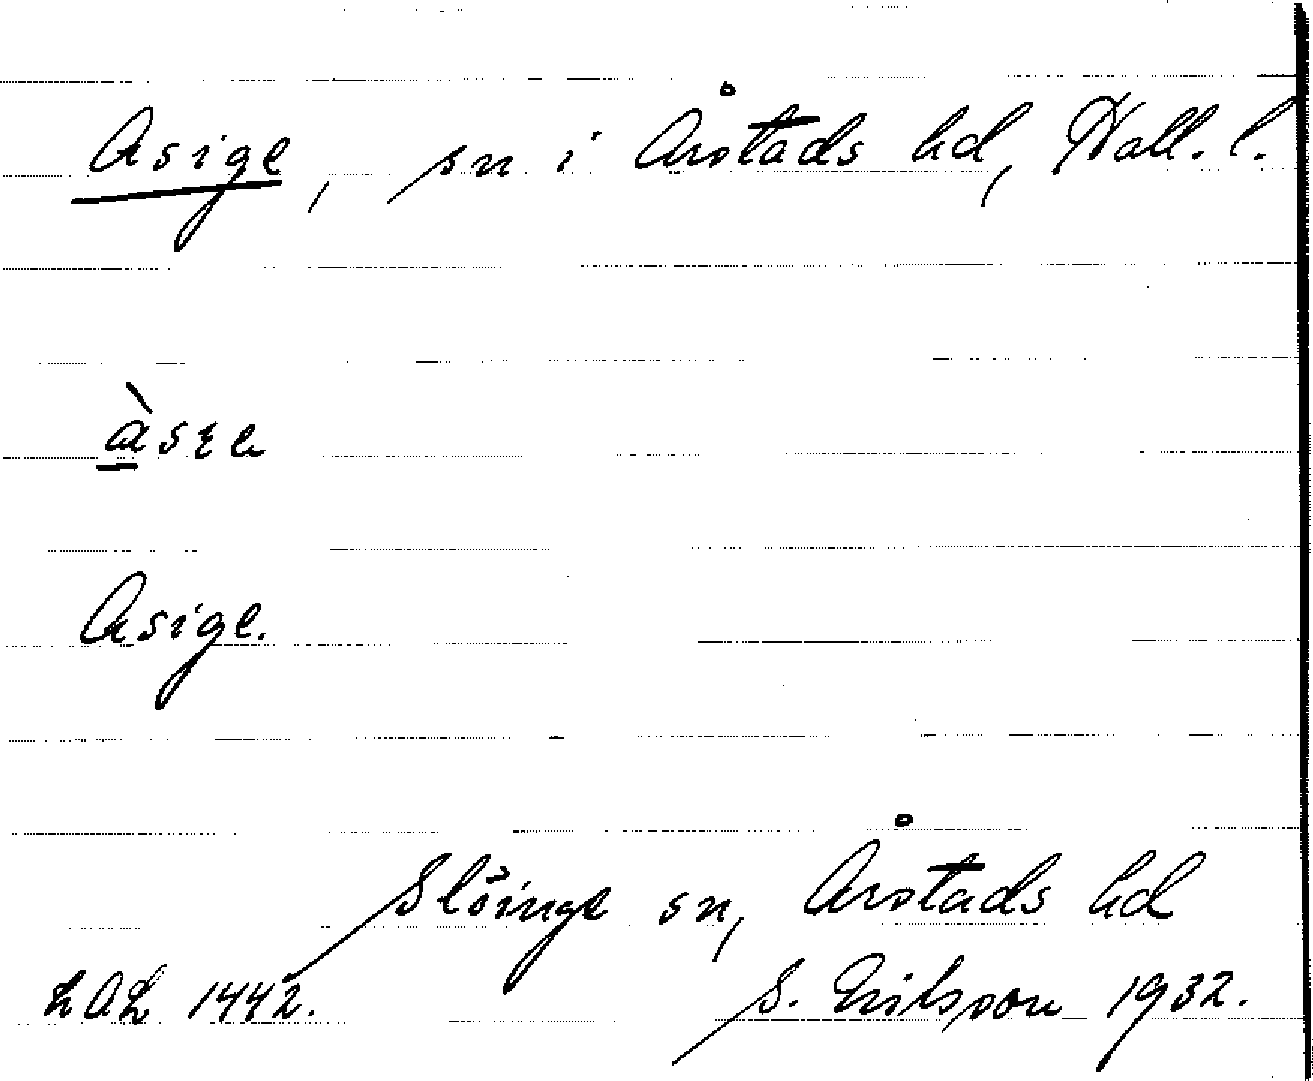 Asige, sn i Årstads hd, Hall. l.
Asige.
Slöinge sn, Årstads hd
LAL 1442. S. Erikson 1932.